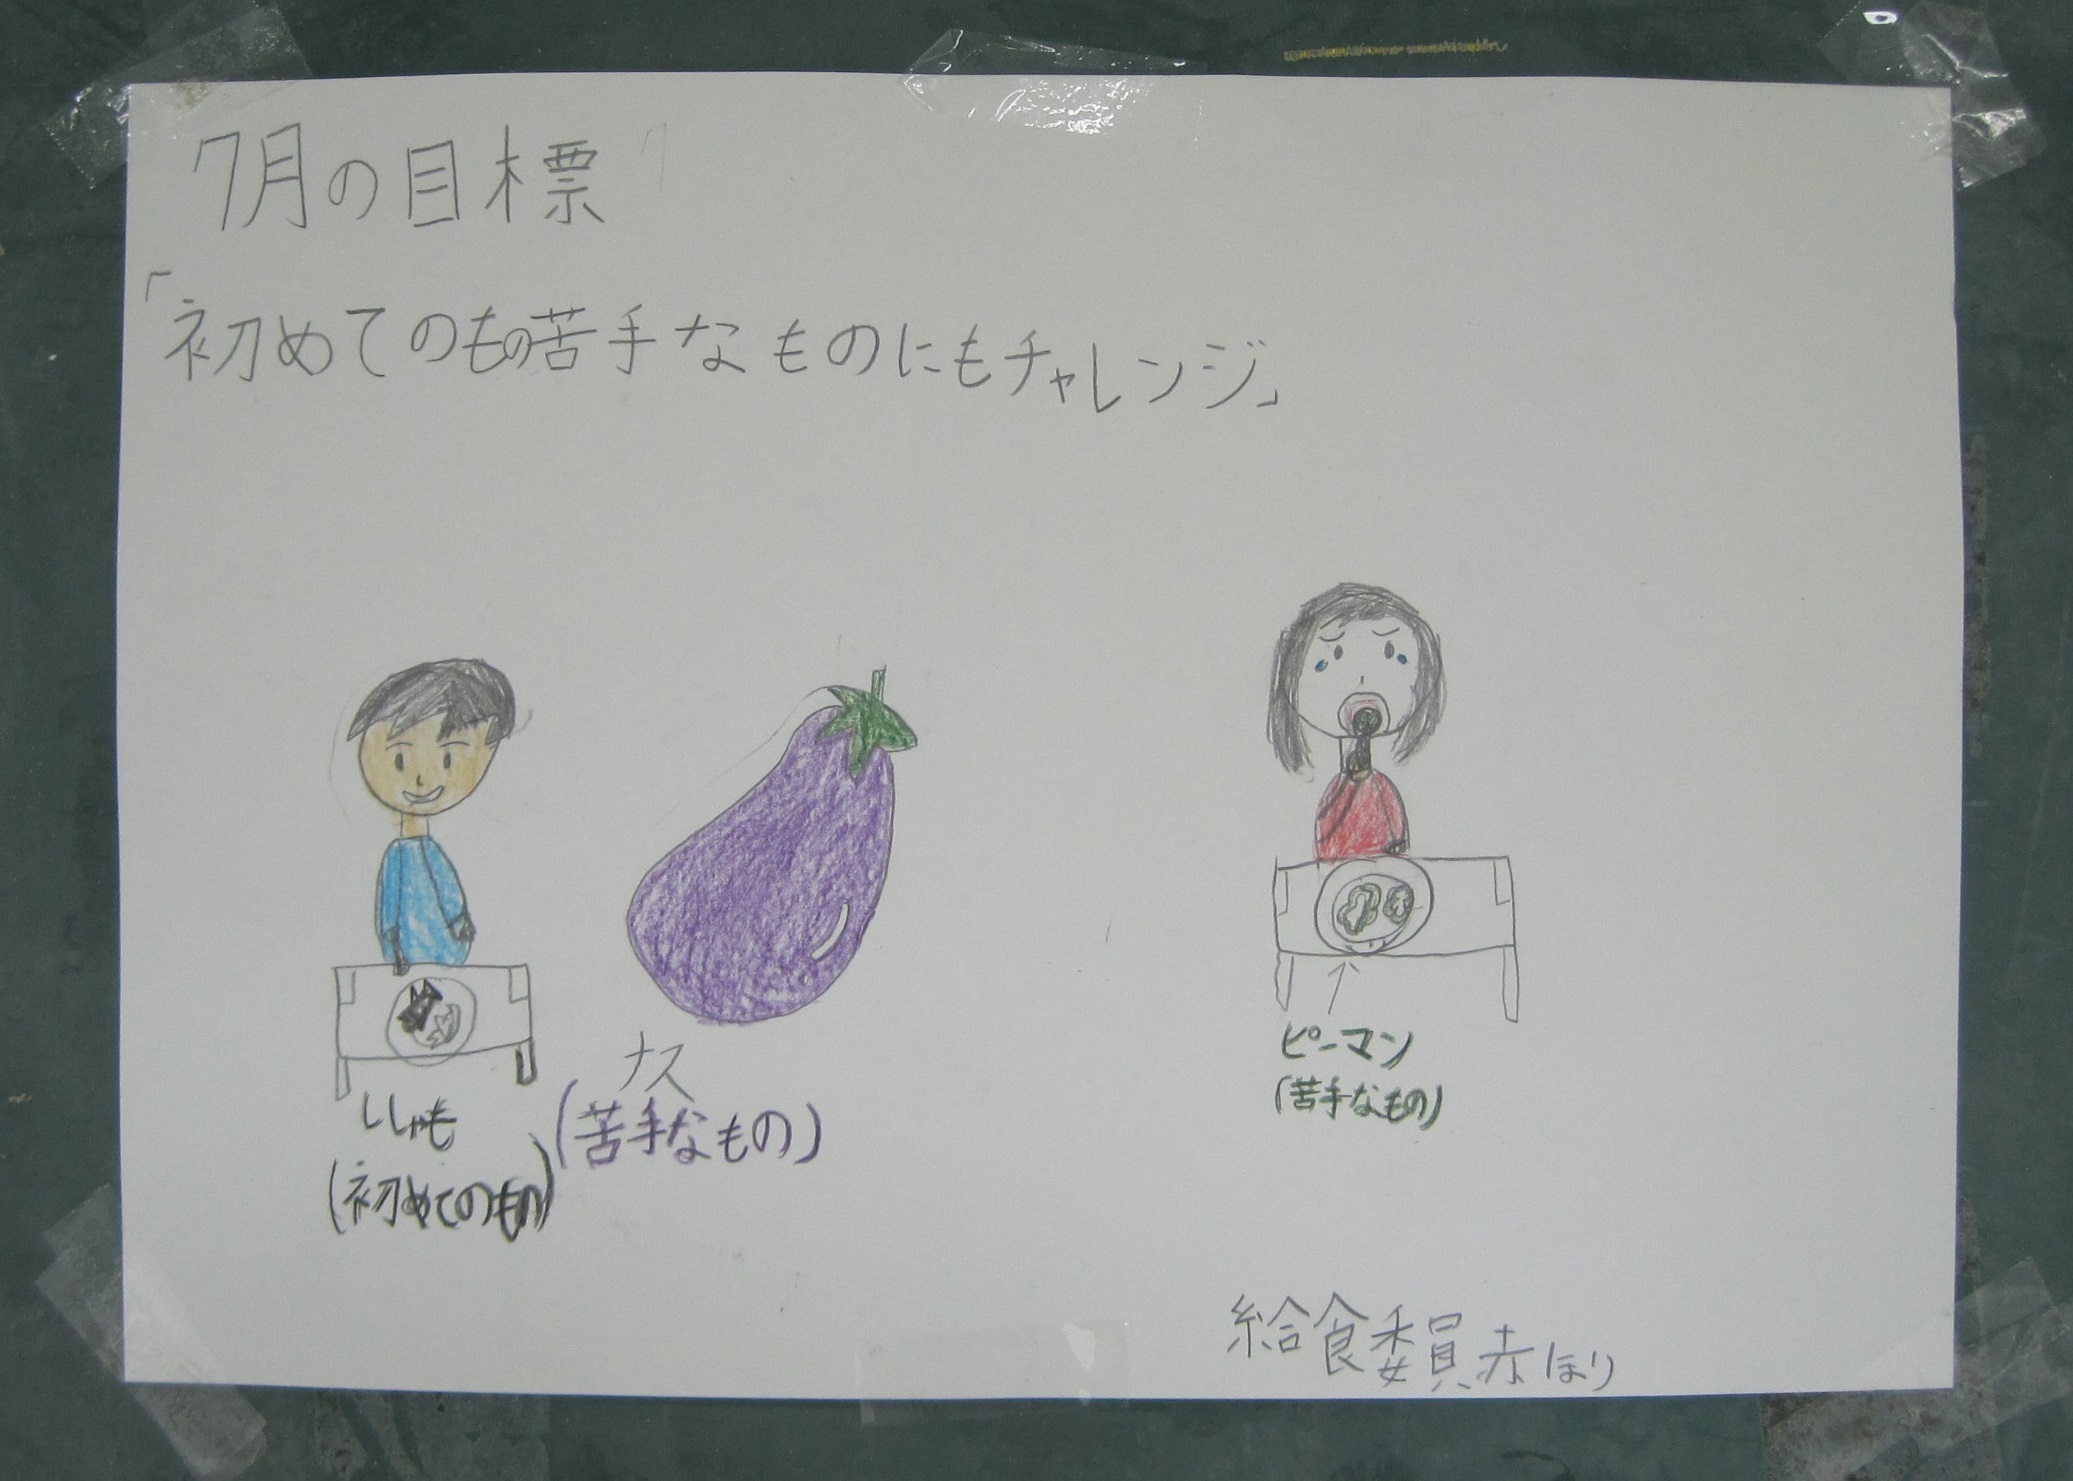 7月の目標
「初めてのもの苦手なものにもチャレンジ」
ししゃも
(初めてのもの)
ナス
(苦手なもの)
ピーマン
(苦手なもの)
給食委員赤ほり